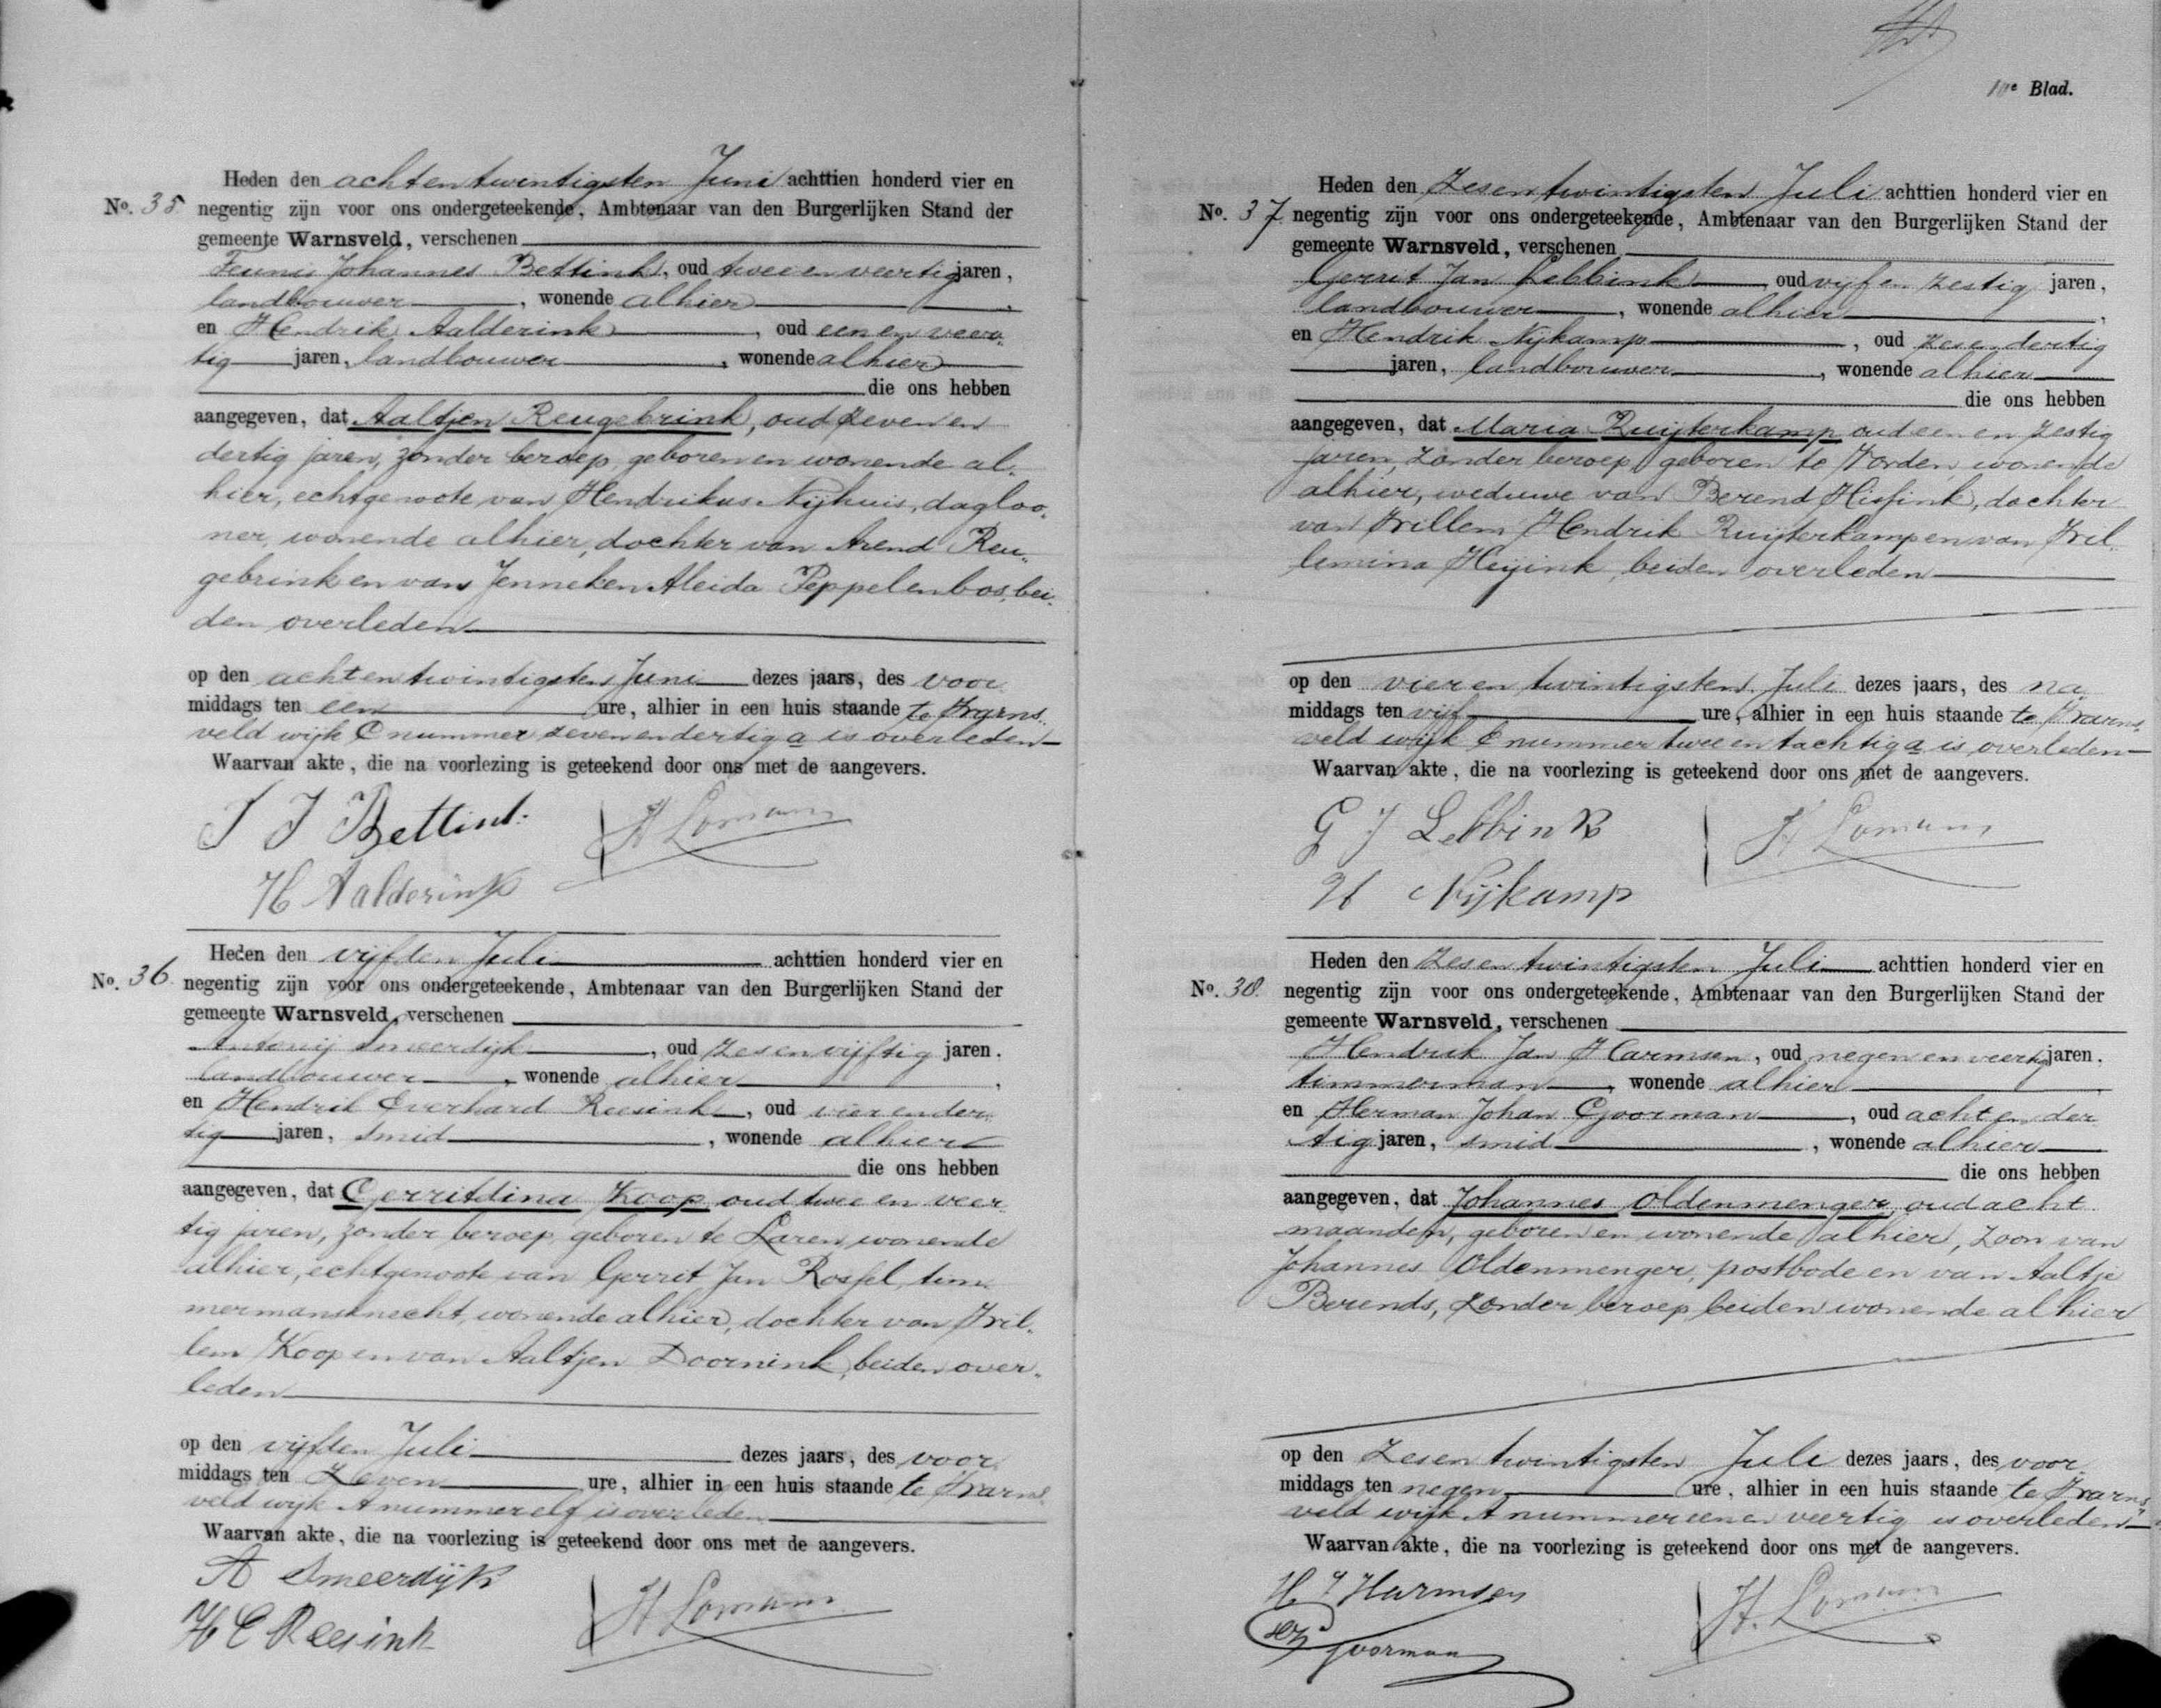 Heden den achtentwintigsten Juni achttien honderd vier en
No. 35. negentig zijn voor ons ondergeteekende, Ambtenaar van den Burgerlijken Stand der
gemeente Warnsveld, verschenen
Teunis Johannes Bettink, oud twee en veertig jaren,
landbouwer, wonende alhier,
en Hendrik Aalderink, oud een en veer
tig jaren, landbouwer, wonende alhier
die ons hebben
aangegeven, dat Aaltjen Reugebrink, oud zeven en
dertig jaren, zonder beroep, geboren en wonende al
hier, echtgenoote van Hendrikus Nijhuis, dagloo
ner, wonende alhier, dochter van Arend Reu
gebrink en van Jenneken Aleida Peppelenbos, bei
den overleden
op den achtentwintigsten Juni dezes jaars, des voor
middags ten een ure, alhier in een huis staande te Warns
veld wijk C nummer zevenendertig a is overleden
Waarvan akte, die na voorlezing is geteekend door ons met de aangevers.
T J Bettink
H Lomans
H Aalderink
Heden den vijfden Juli achttien honderd vier en
No. 36. negentig zijn voor ons ondergeteekende, Ambtenaar van den Burgerlijken Stand der
gemeente Warnsveld, verschenen
Antonij Smeerdijk, oud zesenvijftig jaren.
landbouwer, wonende alhier,
en Hendrik Everhard Reesink, oud vier ender
tig jaren, smid, wonende alhier
die ons hebben
aangegeven, dat Gerritdina Koop oud twee en veer
tig jaren, zonder beroep, geboren te Laren, wonende
alhier, echtgenoote van Gerrit Jan Rossel, tim
mermansknecht, wonende alhier, dochter van Wil
lem Koop en van Aaltjen Doornink, beiden over
leden
op den vijfden Juli dezes jaars, des voor
middags ten zeven ure, alhier in een huis staande te Warns
veld wijk A nummer elf is overleden
Waarvan akte, die na voorlezing is geteekend door ons met de aangevers.
A Smeerdijk
H Lomans
H E Reesink
10e Blad.
Heden den zesentwintigsten Juli achttien honderd vier en
No. 37. negentig zijn voor ons ondergeteekende, Ambtenaar van den Burgerlijken Stand der
gemeente Warnsveld, verschenen
Gerrit Jan Lebbink, oud vijf en zestig jaren,
landbouwer, wonende alhier,
en Hendrik Nijkamp, oud zesendertig
jaren, landbouwer, wonende alhier
die ons hebben
aangegeven, dat Maria Ruijterkamp oud een en zestig
jaren, zonder beroep, geboren te Vorden, wonende
alhier, weduwe van Berend Hissink, dochter
van Willem Hendrik Ruijterkamp en van Wil
lemina Heijink, beiden overleden
op den vierentwintigsten Juli dezes jaars, des na
middags ten vijf ure, alhier in een huis staande te Warns
veld wijk C nummer twee en tachtig a is overleden
Waarvan akte, die na voorlezing is geteekend door ons met de aangevers.
G J Lebbink
H Lomans
H Nijkamp
Heden den zesentwintigsten Juli achttien honderd vier en
No. 38. negentig zijn voor ons ondergeteekende, Ambtenaar van den Burgerlijken Stand der
gemeente Warnsveld, verschenen
Hendrik Jan Harmsen, oud negen en veertig jaren.
timmerman, wonende alhier,
en Herman Johan Gjoorman, oud acht en der
tig jaren, smid, wonende alhier
die ons hebben
aangegeven, dat Johannes Oldenmenger, oud acht
maanden, geboren en wonende alhier, zoon van
Johannes Oldenmenger, postbode en van Aaltje
Berends, zonder beroep, beiden wonende alhier
op den zesentwintigsten Juli dezes jaars, des voor
middags ten negen ure, alhier in een huis staande te Warns
veld wijk A nummer eenen veertig is overleden
Waarvan akte, die na voorlezing is geteekend door ons met de aangevers.
H J Harmsen
H. Lomans